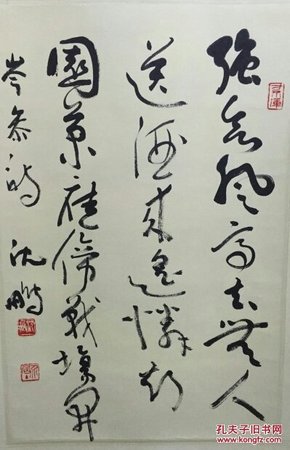 強欲登高去無人
送酒來遥憐故
園菊應傍戰場開
岑參詩 沈鵬
孔夫子旧书网